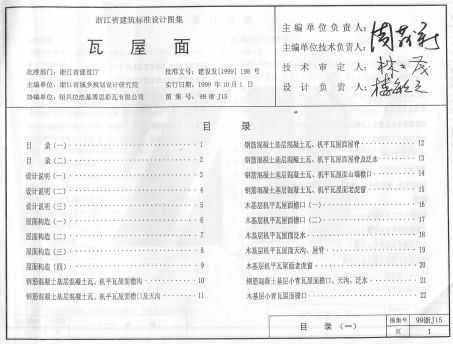 浙江省建筑标准设计图集
瓦屋面
批准部门：浙江省建设厅
批准文号：建设发[1999] 198 号
主编单位：浙江省城乡规划设计研究院
实行日期：1999年10月1日
协编单位：绍兴拉法基博思彩瓦有限公司
图集号：99浙J15
主编单位负责人：
主编单位技术负责人：
技术审定人：
设计负责人：
目录
目录（一） 1
目录（二） 2
设计说明（一） 3
设计说明（二） 4
设计说明（三） 5
屋面构造（一） 6
屋面构造（二） 7
屋面构造（三） 8
屋面构造（四） 9
钢筋混凝土基层混凝土瓦、机平瓦屋面檐沟 10
钢筋混凝土基层混凝土瓦、机平瓦屋面檐口及天沟 11
钢筋混凝土基层混凝土瓦、机平瓦屋面屋脊 12
钢筋混凝土基层混凝土瓦、机平瓦屋面屋脊及泛水 13
钢筋混凝土基层混凝土瓦、机平瓦屋面山墙檐口 14
钢筋混凝土基层混凝土瓦、机平瓦屋面老虎窗 15
木基层机平瓦屋面檐口（一） 16
木基层机平瓦屋面檐口（二） 17
木基层机平瓦屋面泛水 18
木基层机平瓦屋面天沟、屋脊 19
木基层机平瓦屋面老虎窗 20
钢筋混凝土基层小青瓦屋面檐口、天沟、泛水 21
木基层小青瓦屋面檐口 22
目录（一）
图集号 99浙J15
页 1